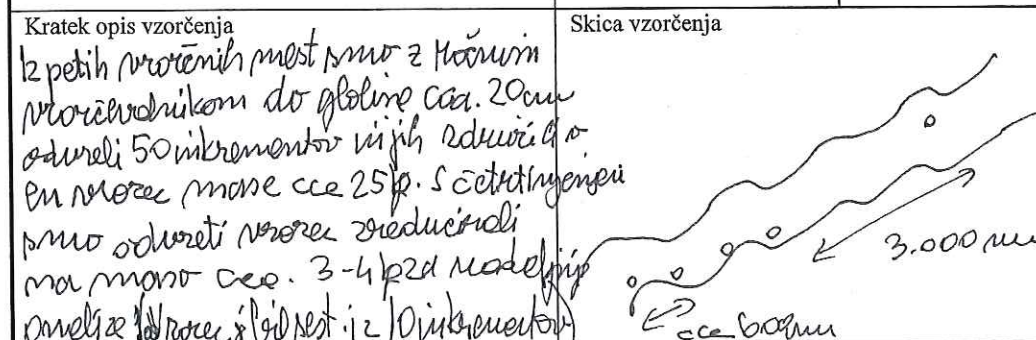 Kratek opis vzorčenja
Skica vzorčenja
Iz petih vzorčnih mest smo z ročnim
vzorčevalnikom do globine cca. 20cm
odvzeli 50 inkrementov in jih združili v
en vzorec mase cca 25kg. S četrtinjenjem
smo odvzeti vzorec zreducirali
na maso cca. 3-4kg za nadaljnje
analize vzorec je bil sest. iz 10 inkrementov)
3.000 m
cca 600m